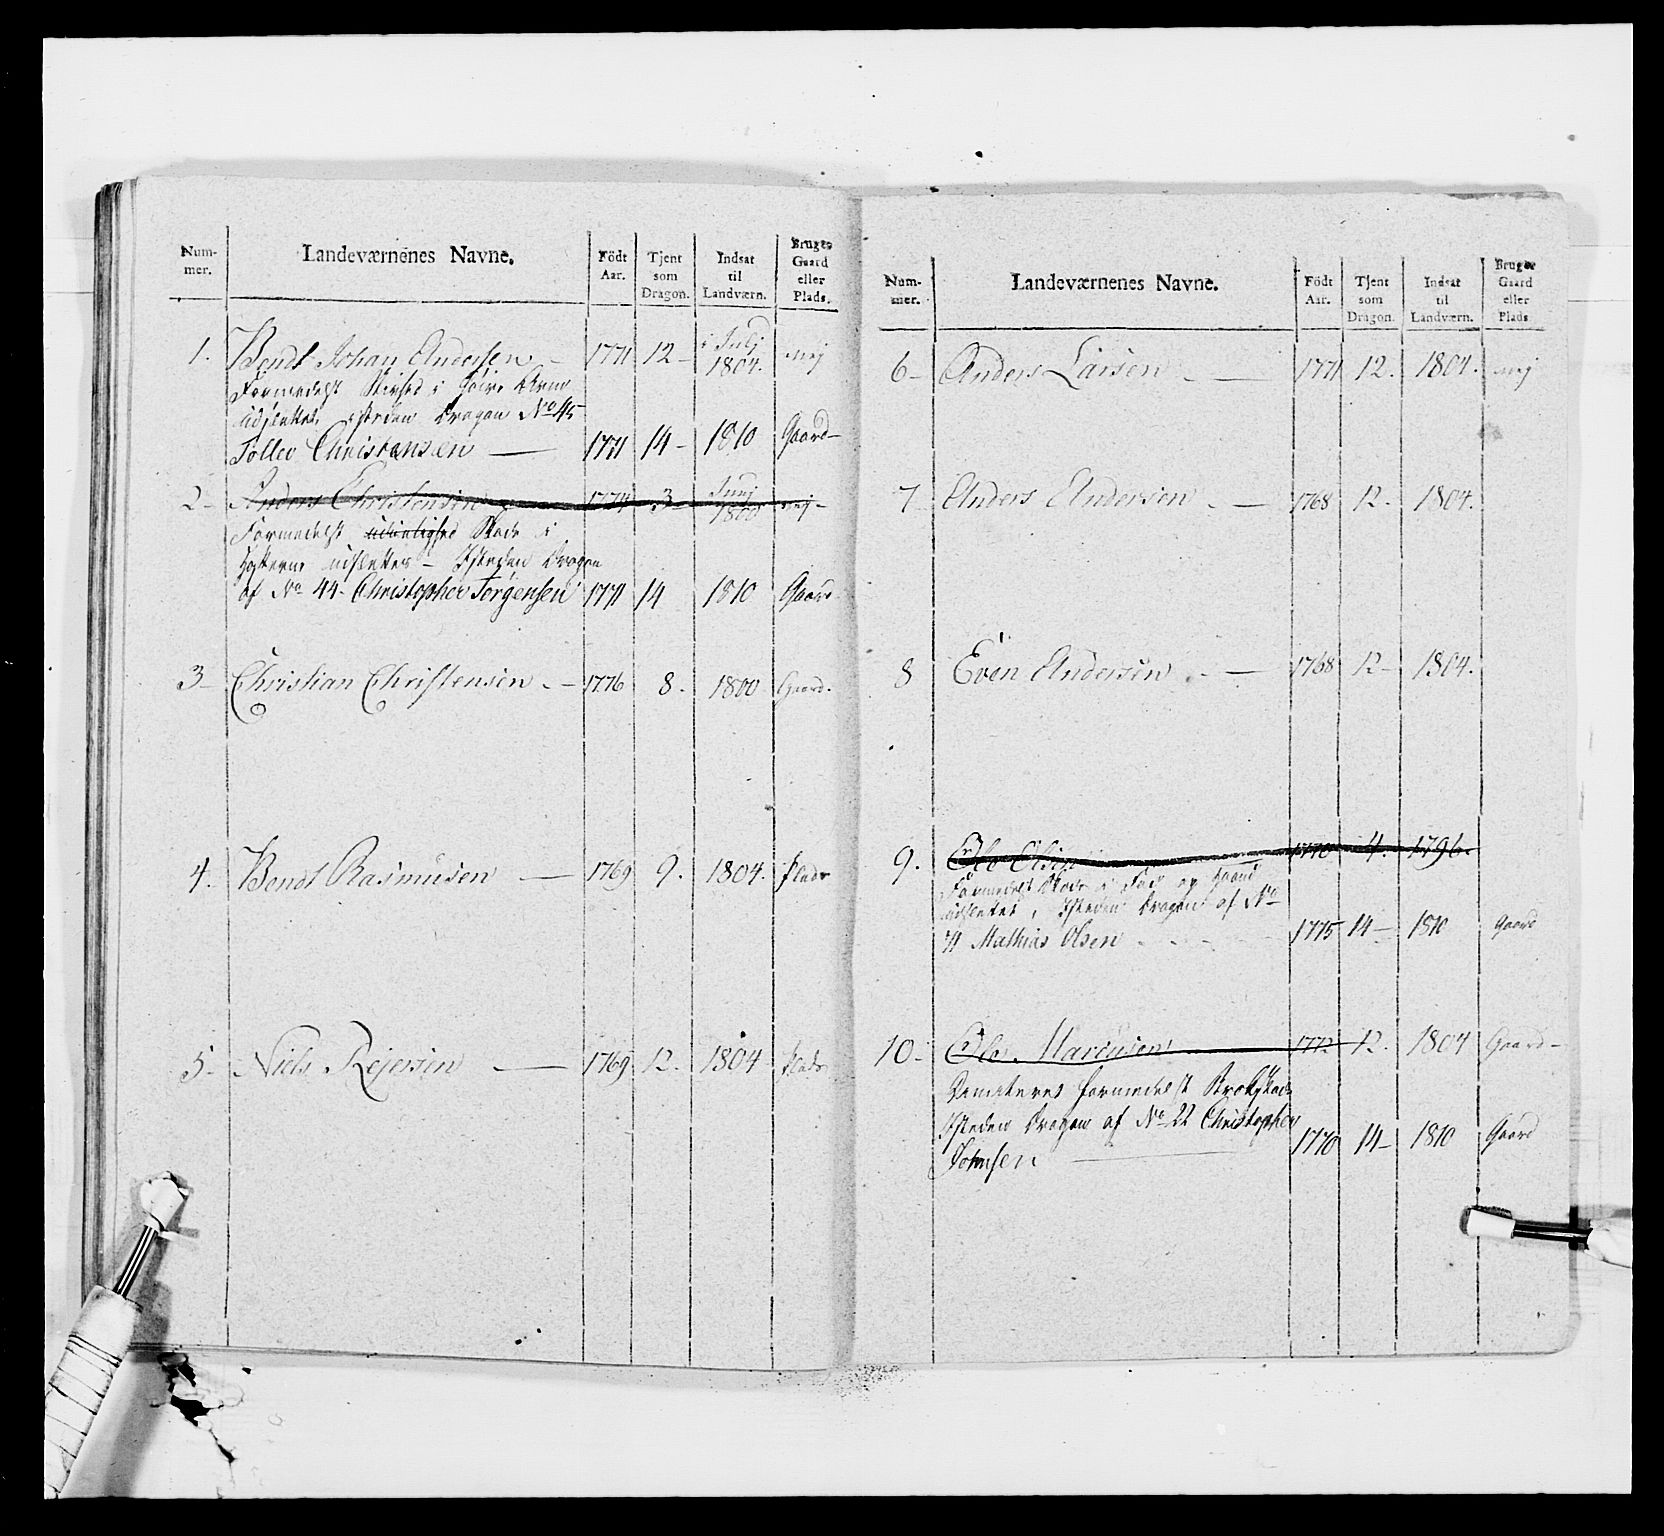 Num-mer. Landeværnenes Navne. Födt Aar. Tjent som Dragon. Indsat til Landværn. Bruger Gaard eller Plads.
1. Bendt Johan Andersen 1771 12 i Julj 1804. nej
Formedelst Stivhed i Høire Arm
udslettet, isteden Dragon No 45
Tollev Christensen 1771 14 1810 Gaard
2 Anders Christensen 1774 3 Junj 1800 nej
Formedelst Skade i
Hofterne udslettes - Isteden Dragon
af No 44 Christopher Jørgensen 1771 14 1810 Gaard
3 Christian Christensen 1776 8. 1800 Gaard.
4. Bendt Rasmusen 1769 9. 1804. Plads
5 Niels Rejersen 1769 12. 1804 Plads
Num-mer. Landeværnenes Navne. Födt Aar. Tjent som Dragon. Indsat til Landværn. Bruger Gaard eller Plads.
6 Anders Larsen 1771 12. 1804. nej
7 Anders Andersen 1768 12. 1804.
8 Even Andersen 1768 12 1804.
9. Ole Olsen 1770 4. 1796.
Formedelst Skade i Fod og Haand
udslettet, Isteden Dragon af No
Mathias Olsen 1775 14 1810 Gaard
10 Ole Marcusen 1772 12. 1804 Gaard
formedelst Brokskade
Isteden Dragon af No 22 Christopher
Johnsen 1770 14 1810 Gaard